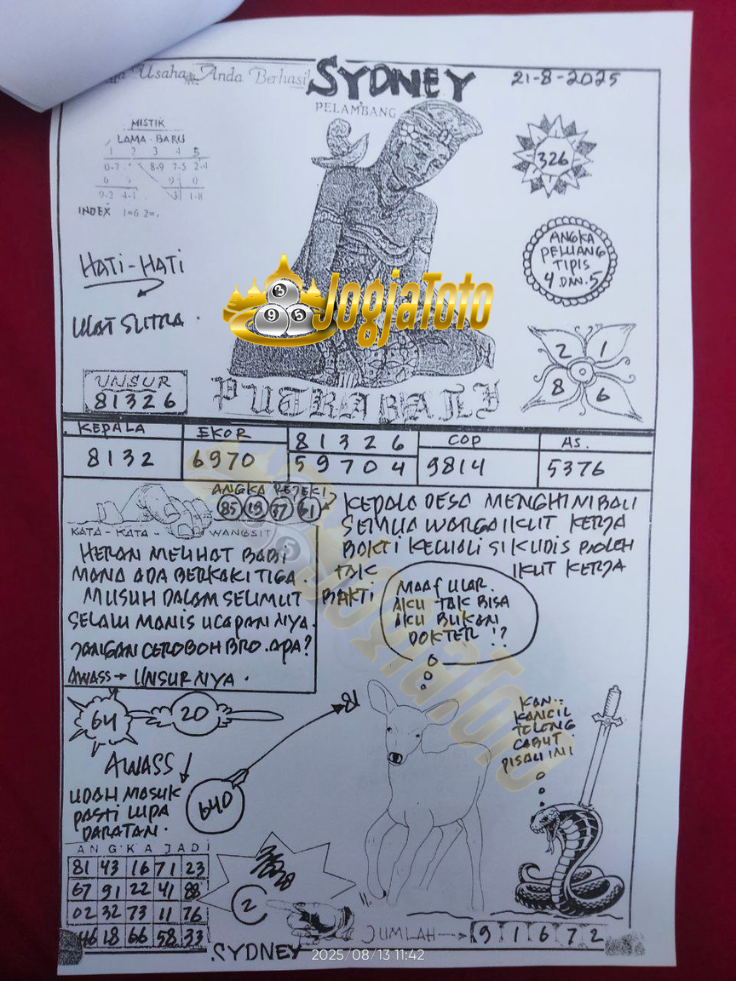 Usaha Anda Berhasil
SYDNEY
21-8-2025
PELAMBANG
MISTIK
LAMA - BARU
1 2 3 4 5
0-7 8-9 7-5 2-4
9-2 4-1 1-8
INDEX 1=6 2=
326
ANGKA
PELUANG
TIPIS
4 DAN 5
HATI-HATI
ULAT SUTRA.
JogjaToto
2 1
8 6
UNSUR
81326
PUTRA BALI
KEPALA EKOR 81326 COP AS.
8132 6970 59704 9814 5376
ANGKA REJEKI
85 19 37 61
KATA - KATA - WANGSIT
HERAN MELIHAT BABI
MANA ADA BERKAKI TIGA.
MUSUH DALAM SELIMUT
SELALU MANIS UCAPANNYA.
JANGAN CEROBOH BRO. APA?
AWASS → UNSURNYA.
KEPALA DESA MENGHIMBAU
SEMUA WARGA IKUT KERJA
BAKTI KECUALI SI KUDIS BOLEH
TAK IKUT KERJA
BAKTI
MAAF ULAR.
AKU TAK BISA
AKU BUKAN
DOKTER !?
64
20
81
KAN..
KANCIL
TOLONG
CABUT
PISAU INI
AWASS!
UDAH MASUK
PASTI LUPA
DARATAN.
640
ANGKA JADI
81 43 16 71 23
67 91 22 41 88
02 32 73 11 76
46 18 66 58 33
2
JUMLAH → 9 1 6 7 2
SYDNEY
2025/08/13 11:42